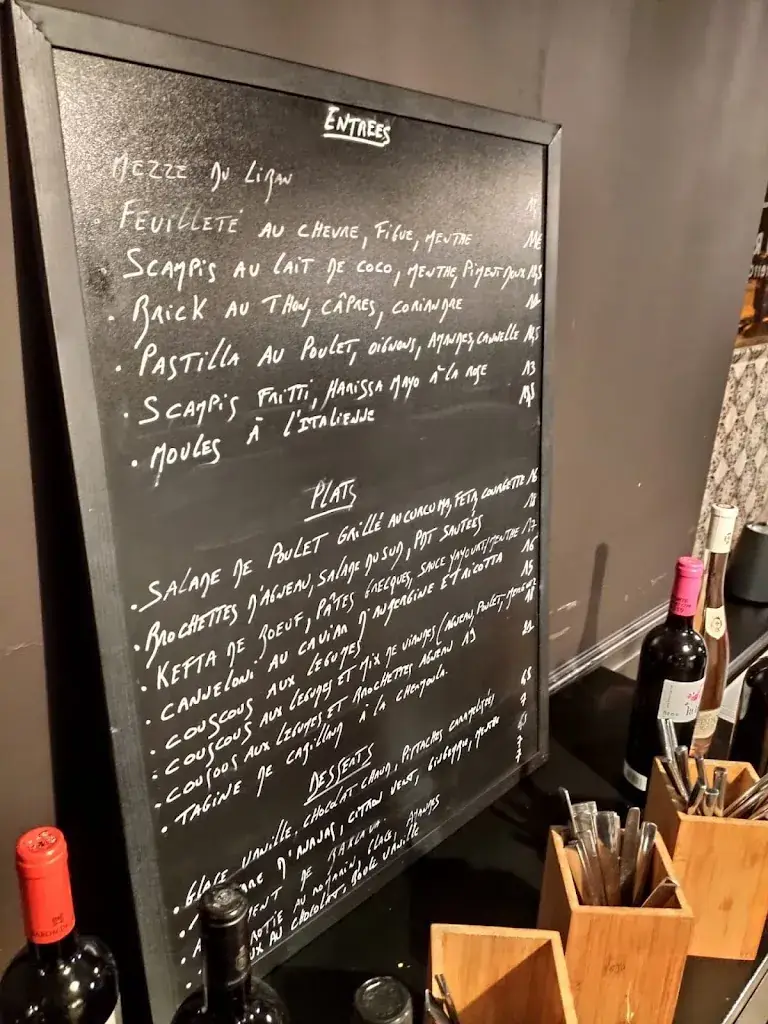 ENTREES
MEZZE DU LIBAN
FEUILLETÉ AU CHEVRE, FIGUE, MENTHE
SCAMPIS AU LAIT DE COCO, MENTHE, PIMENT DOUX
BRICK AU THON, CÂPRES, CORIANDRE
PASTILLA AU POULET, OIGNONS, AMANDES, CANNELLE
SCAMPIS FRITTI, HARISSA MAYO À LA ROSE 13
MOULES À L'ITALIENNE
PLATS
SALADE DE POULET GRILLÉ AU CURCUMA, FETA, COURGETTE 16
BROCHETTES D'AGNEAU, SALADE DU SUD, PDT SAUTÉES 18
KEFTA DE BOEUF, PÂTES GRECQUES, SAUCE YAYOURT/MENTHE 17
CANNELONI AU CAVIAR D'AUBERGINE ET RICOTTA 16
COUSCOUS AUX LEGUMES 15
COUSCOUS AUX LEGUMES ET MIX DE VIANDES (AGNEAU, POULET,
COUSOUS AUX LEGUMES ET BROCHETTES AGNEAU 19
TAGINE DE CABILLAUD À LA CHEMOULA
DESSERTS
GLACE VANILLE, CHOCOLAT CHAUD, PISTACHES CARAMELISÉS
D'ANANAS, CITRON VERT, GINGEMBRE, MENTHE 7
DE BAKLAVA
AU ROMARIN, GLACE AMANDES 7
AU CHOCOLAT, BOULE VANILLE 7